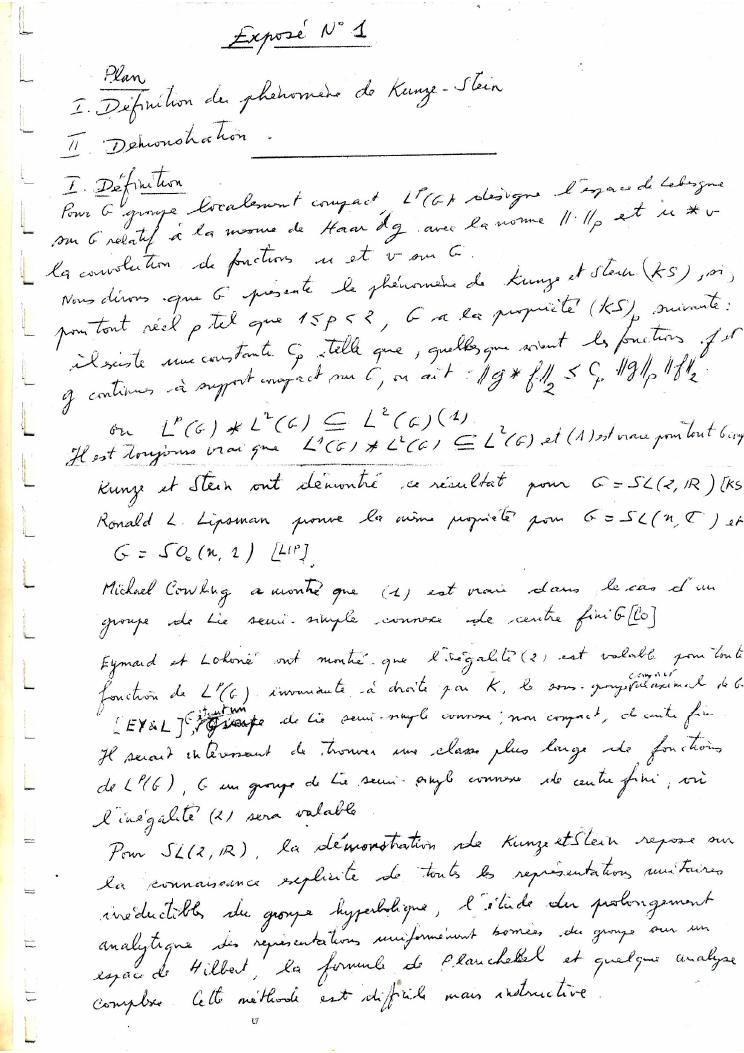 Exposé N° 1
Plan
I. Définition du phénomène de Kunze-Stein
II Démonstration.
I. Définition
Pour G groupe localement compact, L^p(G) désigne l'espace de Lebesgue
sur G relatif à la mesure de Haar dg avec la norme ||·||_p et u * v
la convolution de fonctions u et v sur G.
Nous dirons que G présente le phénomène de Kunze et Stein (KS), si,
pour tout réel p tel que 1 ≤ p < 2, G a la propriété (KS)_p suivante :
il existe une constante C_p telle que, quelles que soient les fonctions f et
g continues à support compact sur G, on ait : ||g * f||_2 ≤ C_p ||g||_p ||f||_2.
ou L^p(G) * L^2(G) ⊆ L^2(G) (1)
Il est toujours vrai que L^1(G) * L^2(G) ⊆ L^2(G) et (1) est vraie pour tout G
Kunze et Stein ont démontré ce résultat pour G = SL(2, IR) [KS
Ronald L. Lipsman prouve la même propriété pour G = SL(n, C) et
G = SO_0(n, 1) [LIP].
Michael Cowling a montré que (1) est vraie dans le cas d'un
groupe de Lie semi-simple connexe de centre fini G [Co]
Eymard et Lohoué ont montré que l'inégalité (2) est valable pour toute
fonction de L^p(G) invariante à droite par K, le sous-groupe compact maximal de G
[EY&L] G étant un groupe de Lie semi-simple connexe, non compact, de centre fini
Il serait intéressant de trouver une classe plus large de fonctions
de L^p(G), G un groupe de Lie semi-simple connexe de centre fini, où
l'inégalité (2) sera valable.
Pour SL(2, IR), la démonstration de Kunze et Stein repose sur
la connaissance explicite de toutes les représentations unitaires
irréductibles du groupe hyperbolique, l'étude du prolongement
analytique des représentations uniformément bornées du groupe sur un
espace de Hilbert, la formule de Plancherel et quelque analyse
complexe. Cette méthode est difficile mais instructive.